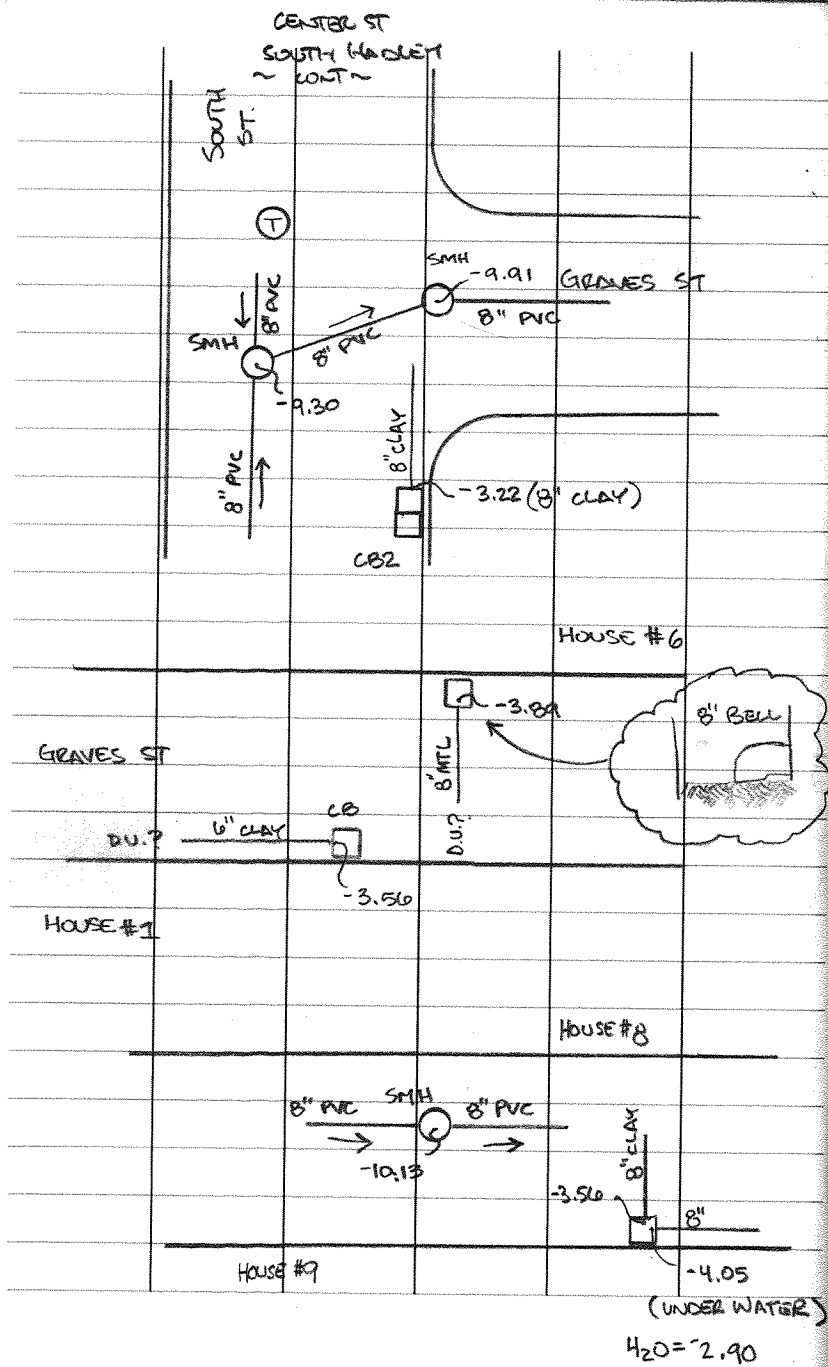 CENTER ST
SOUTH HADLEY
~ CONT ~
SOUTH
ST.
T
SMH
-9.91
GRAVES ST
8" PVC
8" PVC
SMH
8" PVC
-9.30
8" CLAY
8" PVC
-3.22 (8" CLAY)
CB2
HOUSE #6
-3.89
8" BELL
GRAVES ST
8" MTL
CB
6" CLAY
D.U.?
D.U.?
-3.56
HOUSE #1
HOUSE #8
8" PVC
SMH
8" PVC
-10.13
8" CLAY
-3.56
8"
-4.05
HOUSE #9
(UNDER WATER)
H2O = -2.90